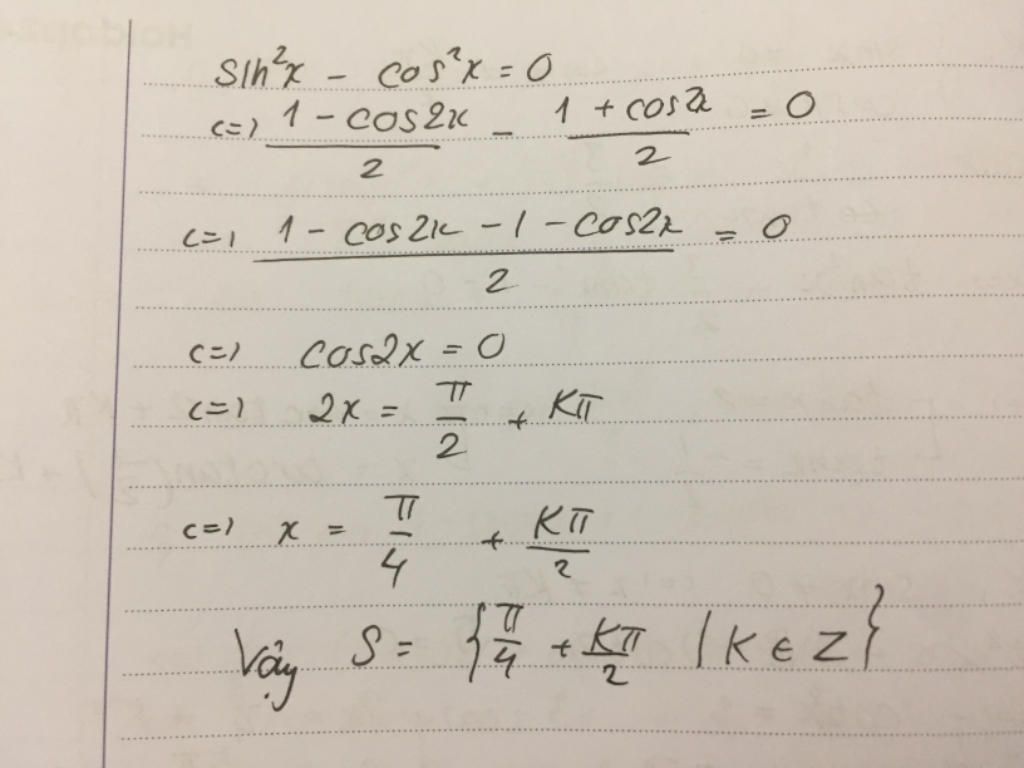 sin²x - cos²x = 0
<=> (1 - cos2x)/2 - (1 + cos2x)/2 = 0
<=> (1 - cos2x - 1 - cos2x)/2 = 0
<=> cos2x = 0
<=> 2x = π/2 + Kπ
<=> x = π/4 + Kπ/2
Vậy S = {π/4 + Kπ/2 | K ∈ Z}